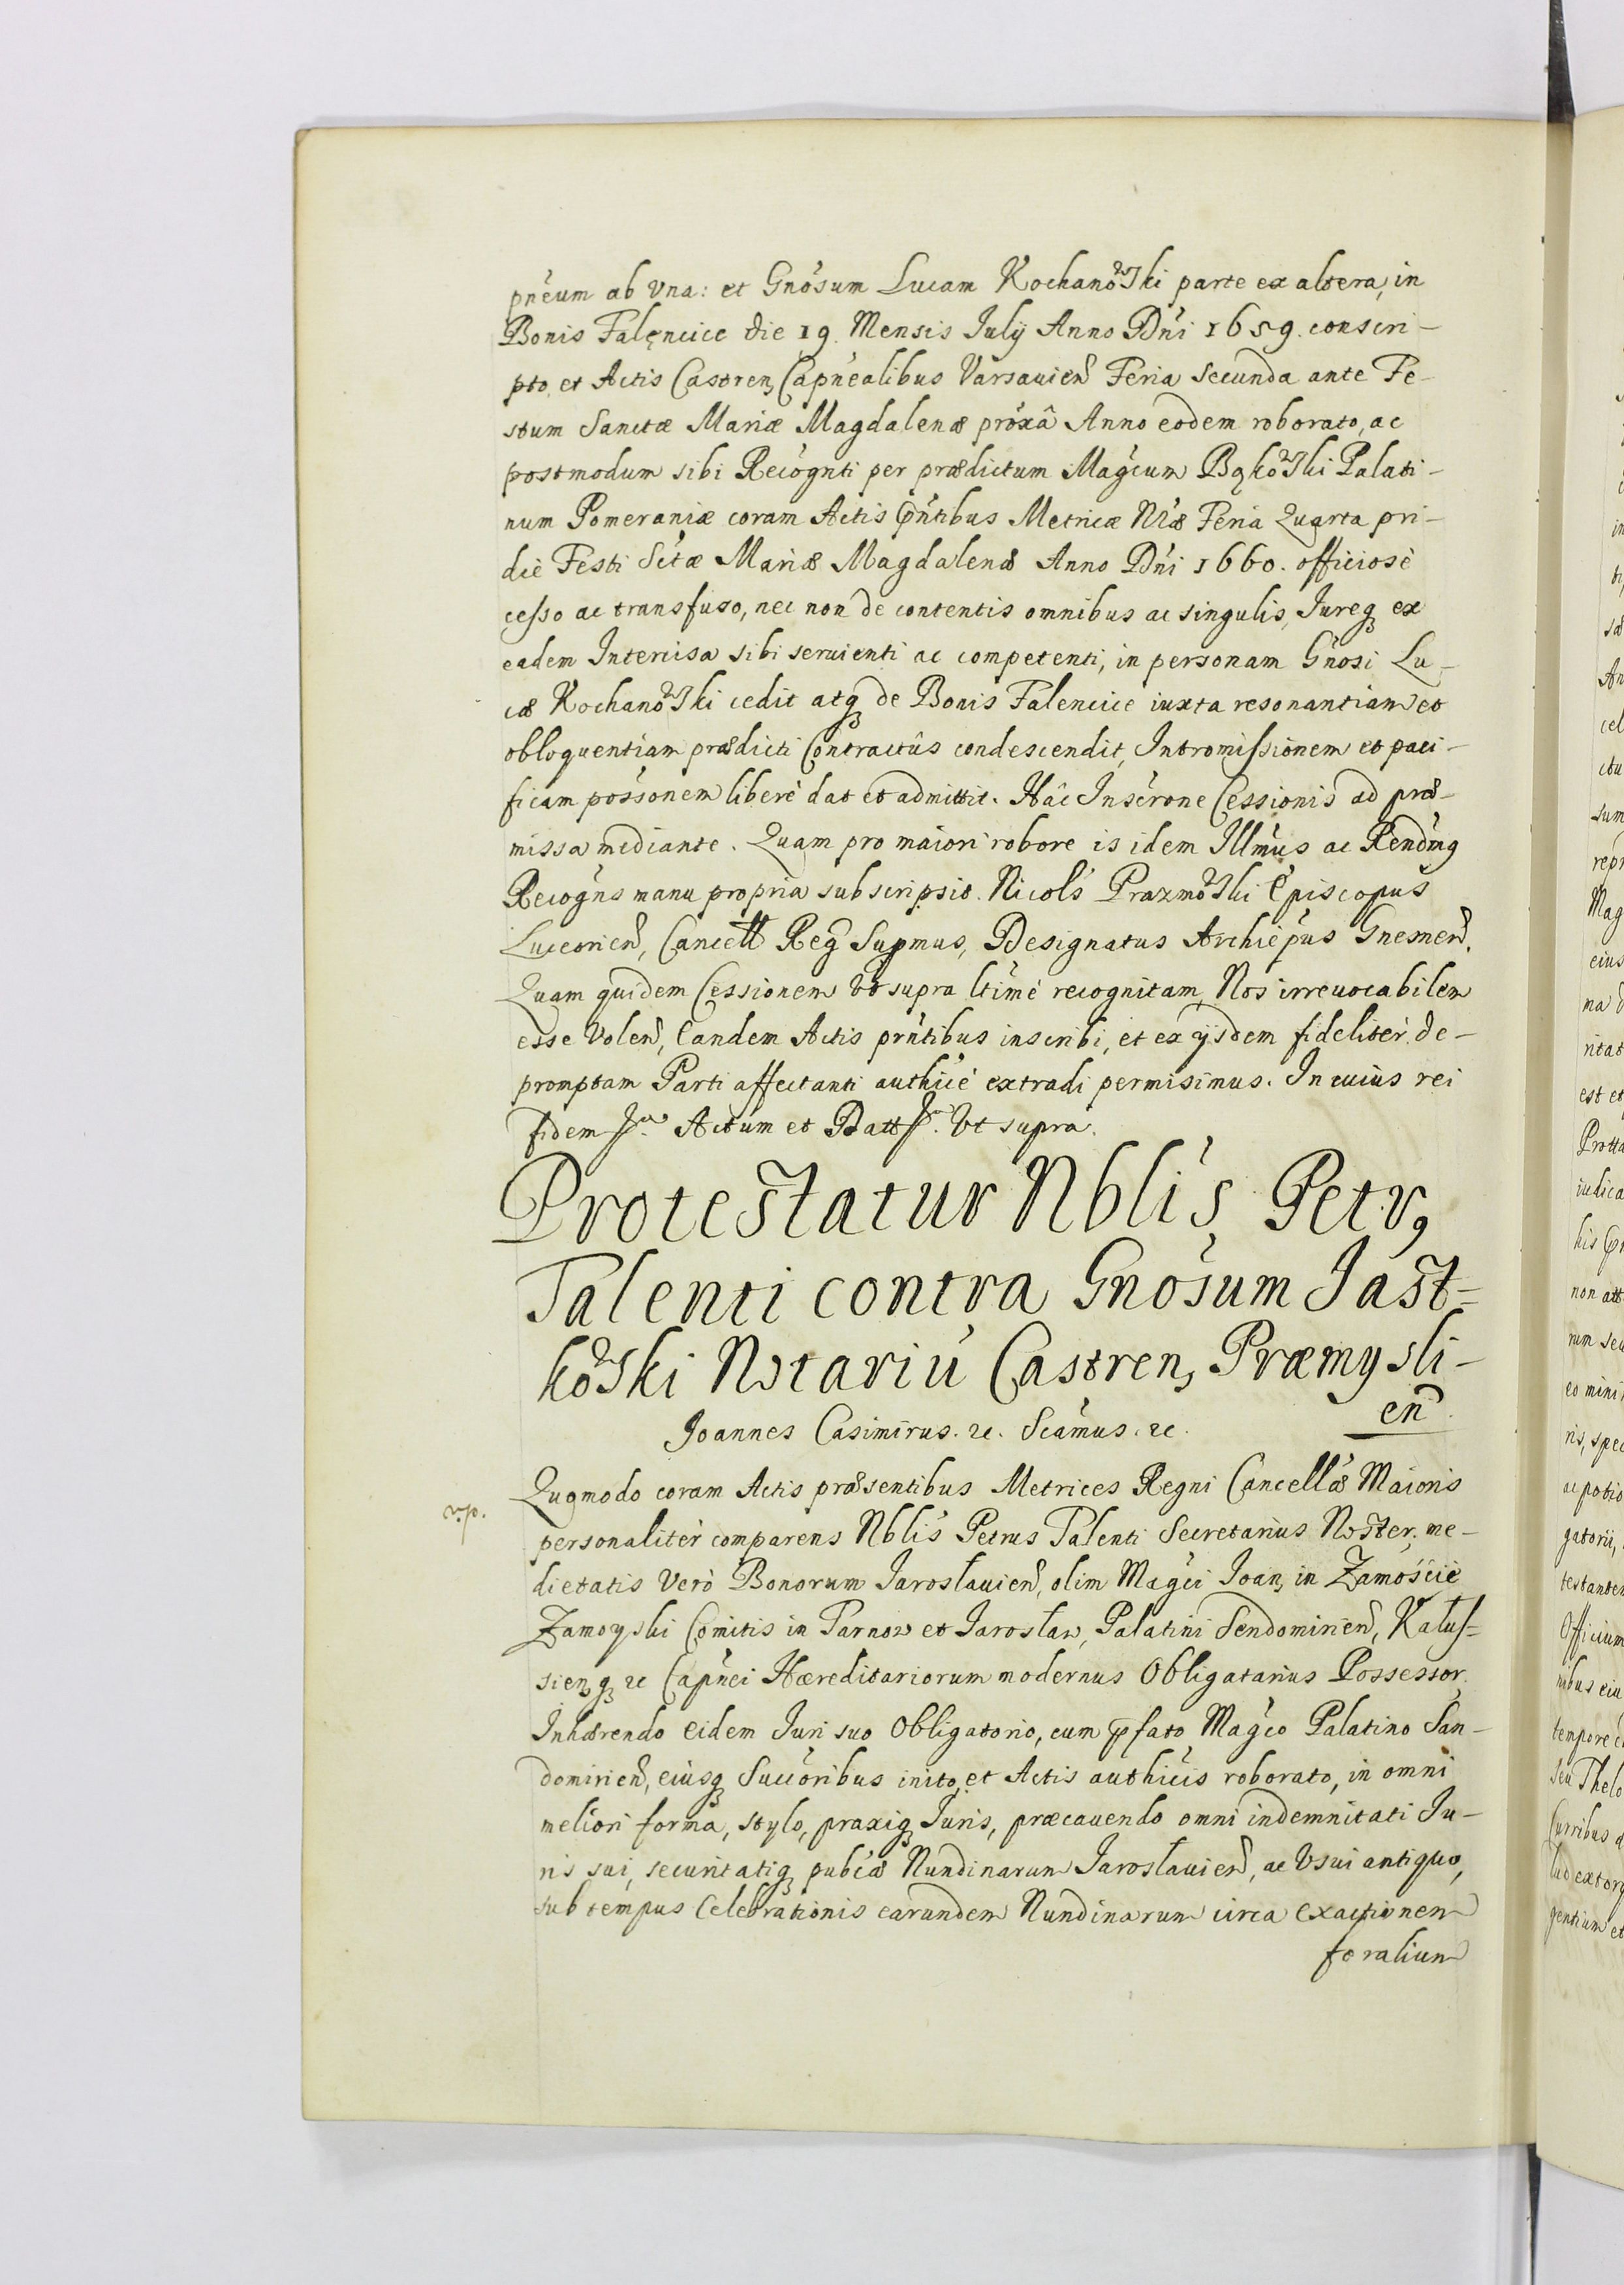 pnẽum ab Vna: et Gnõsum Lucam Kochanowski parte ex altera, in
Bonis Falęncice die 19. Mensis Iulij Anno Dñi 1659. conscri-
pto, et Actis Castren, Capnealibus Varsavien Feria secunda ante Fe-
stum Sanctæ Mariæ Magdalenæ proxâ Anno eodem roborato, ac
postmodum sibi Recognti per prædictum Magcum Bąkowski Palati-
num Pomeraniæ coram Actis pñtibus Metricæ Nræ Feria Quarta pri-
die Festi Sctæ Mariæ Magdalenæ Anno Dñi 1660. officiosè
cesso ac transfuso, nec non de contentis omnibus ac singulis, Iureq ex
eadem Intercisa sibi seruienti ac competenti, in personam Gnosi Lu-
cæ Kochanowski cedit atq de Bonis Falencice iuxta resonantiam et
obloquentiam prædicti Contractûs condescendit, Intromissionem et paci-
ficam possonem liberè dat et admittit. Hâc Inscrone Cessionis ad præ-
missa mediante. Quam pro maiori robore is idem Illmus ac Rendmg
Recogns manu propria subscripsit. Nicols Prazmowski Episcopus
Luceorien, Cancell Reg Supmus, Designatus Archiepus Gnesnen.
Quam quidem Cessionem Vt supra ltime recognitam, Nos irreuocabilem
esse Volen, Eandem Actis pñtibus inscribi, et ex ijsdem fideliter de-
promptam Parti affectanti authice extradi permisimus. In cuius rei
fidem Actum et Datt Vt supra.
Protestatur Nblis Petrg
Talenti contra Gnosum Jast=
kowski Notariu Castren, Præmysli-
en
Joannes Casimirus. &c. Scamus. &c.
Quomodo coram Actis præsentibus Metrices Regni Cancellæ Maioris
personaliter comparens Nblis Petrus Talenti Secretarius Noster, me-
dietatis Verò Bonorum Jarosłauien, olim Magci Joan, in Zamoście
Zamoyski Comitis in Tarnow et Jarosław, Palatini Sendomirien, Kałus=
sien q &c Capnei Hæreditariorum modernus Obligatarius Possessor.
Inhærendo eidem Iuri suo Obligatorio, cum pfato Magco Palatino San-
domirien, eiusq Succoribus inito, et Actis authicis roborato, in omni
meliori forma, stylo, praxiq Iuris, præcauendo omni indemnitati Iu-
ris sui, securitatiq pubcæ Nundinarum Jarosłauien, ac Vsui antiquo,
sub tempus Celebrationis earundem Nundinarum circa exactionem
foralium